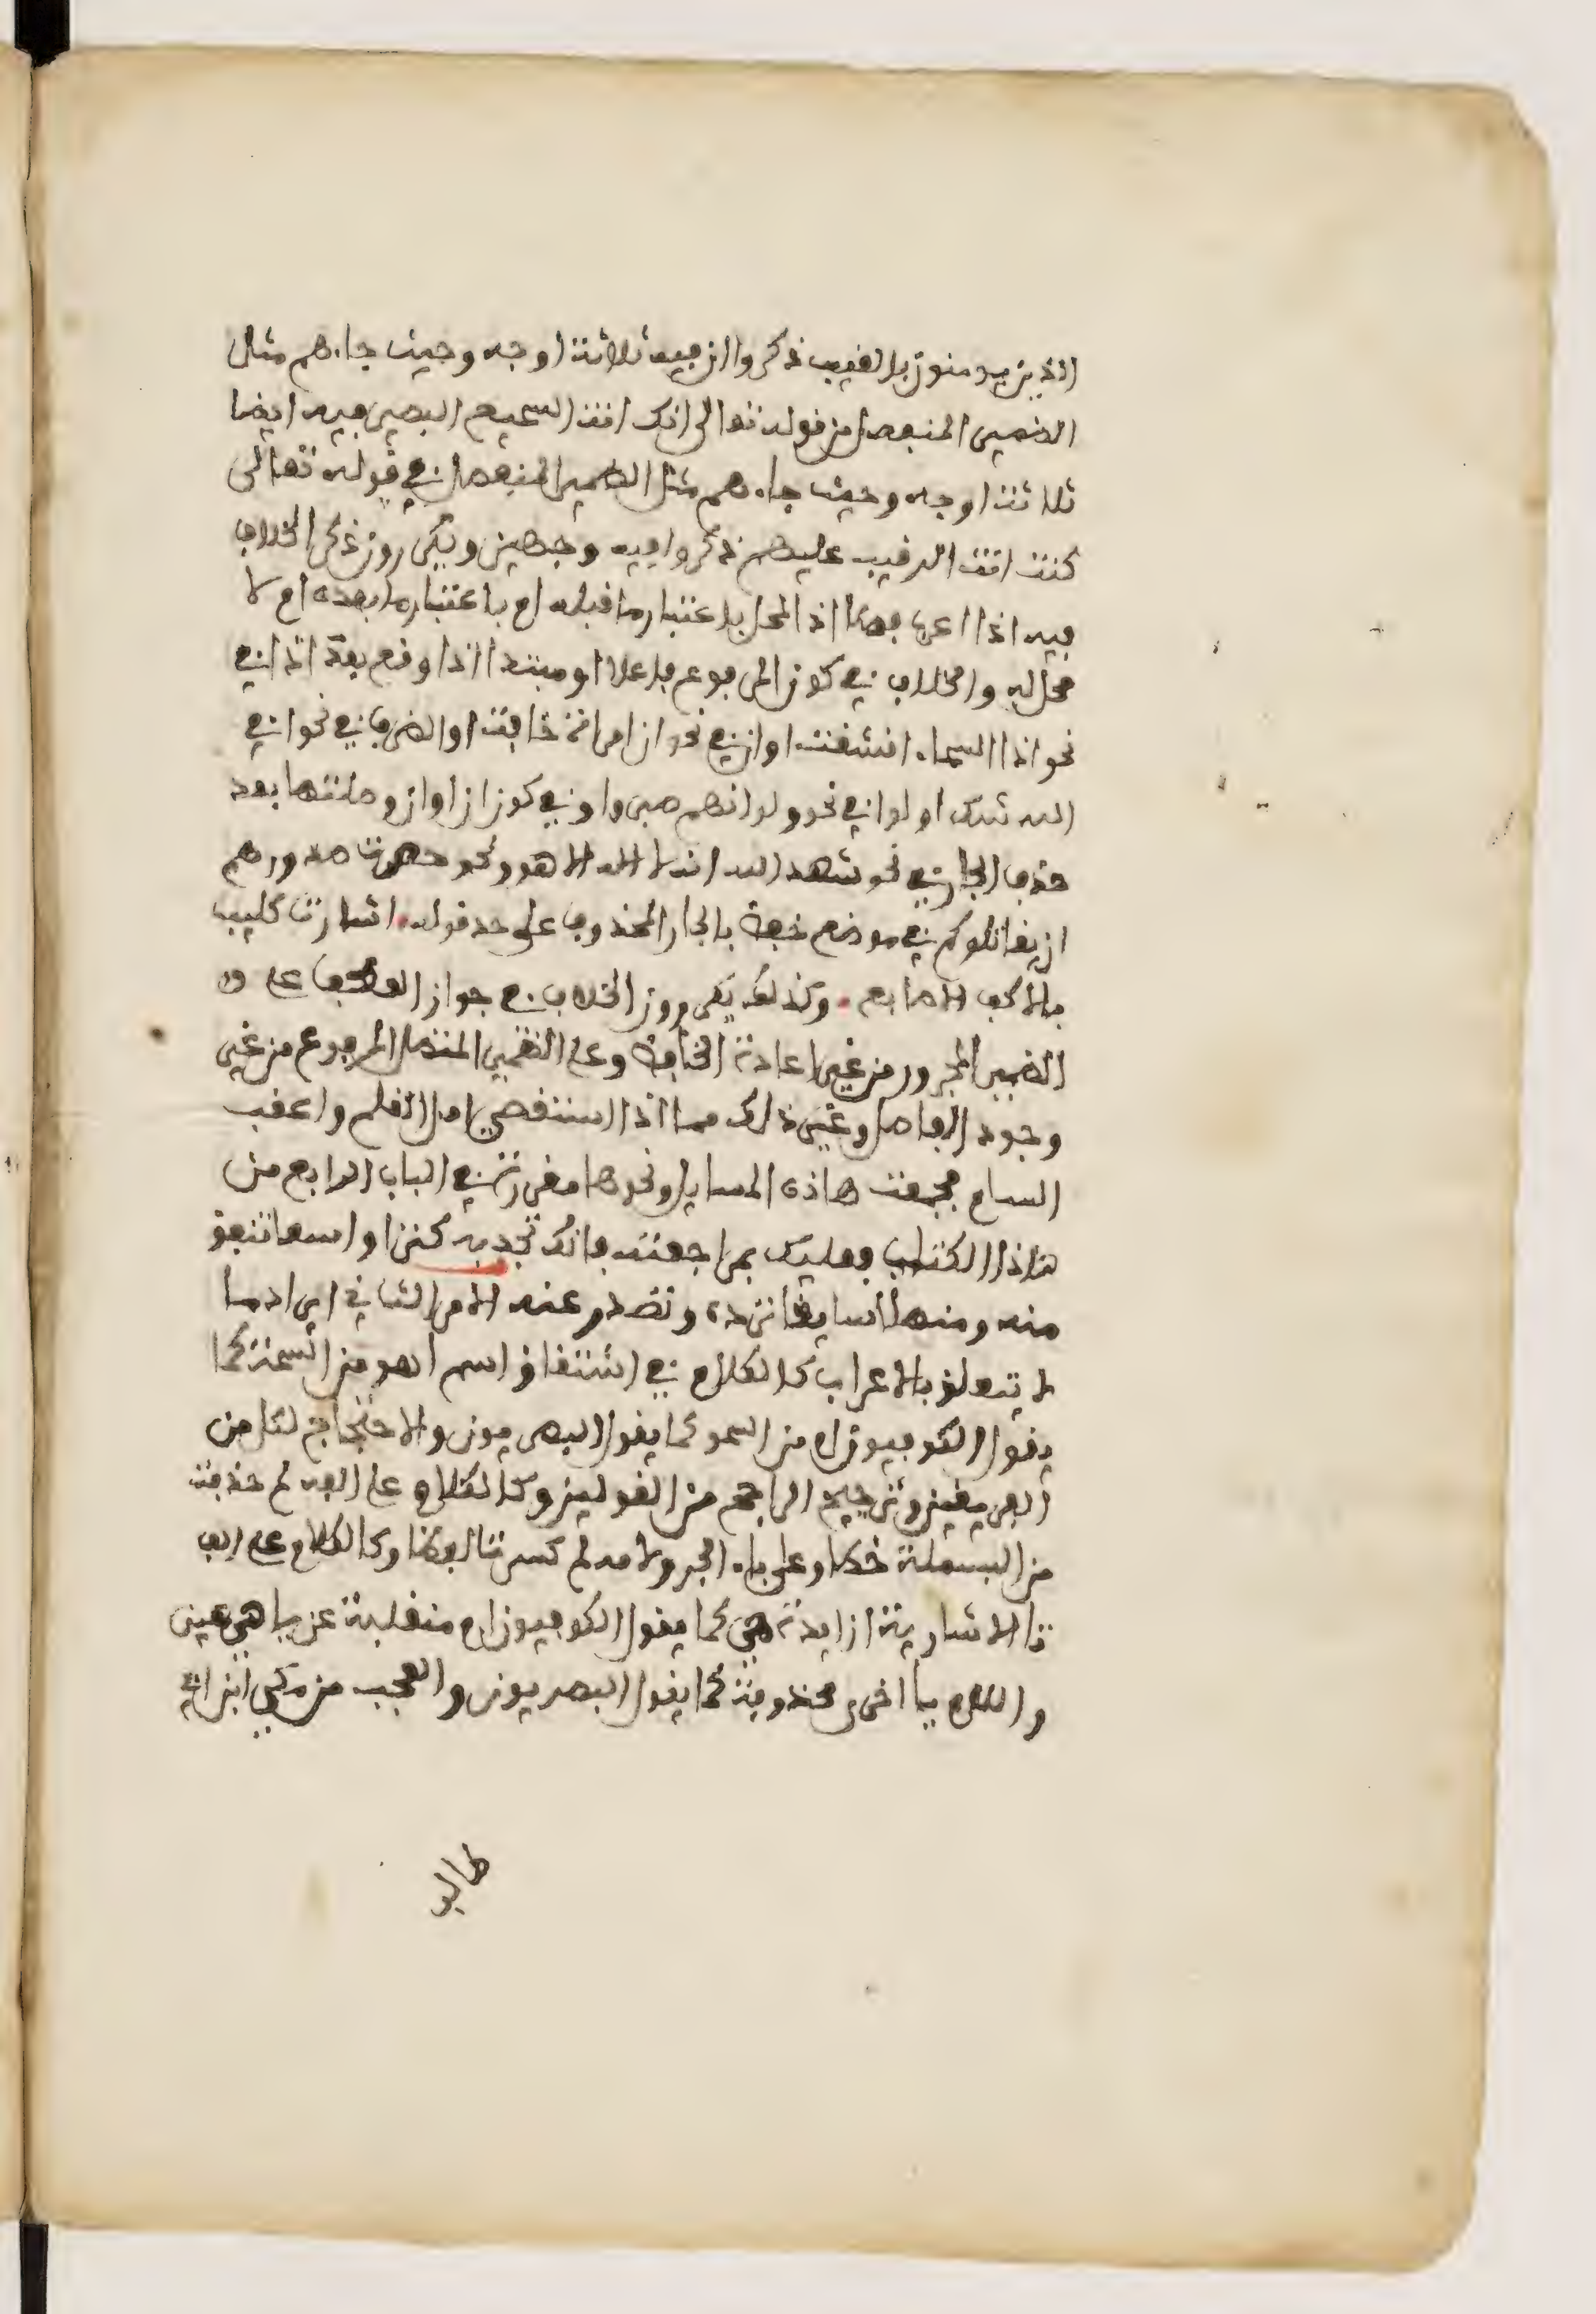 الذين يومنون بالغيب ذكروا ان فيه ثلاثة اوجه وحيث جاءهم مثل
الضمير المنفصل من قوله تعالى انك انت السميع البصير فيه ايضا
ثلاثة اوجه وحيث جاءهم مثل الضمير المنفصل في قوله تعالى
كنت انت الرقيب عليهم ذكروا فيه وجهين ويكررون ذكر الخلاف
فيه اذا اعرب فصلا اذ المحل باعتبار ما قبله ام باعتبار ما بعده ام لا
محل له والخلاف في كون المرفوع فاعلا او مبتدا اذا وقع بعد اذا في
نحو اذا السماء انشقت او ان في نحو ان امراة خافت او الظرف في نحو افي
الله شك او لو في نحو ولو انهم صبروا وفي كون ان او ان وصلتها بعد
حذف الجار في نحو شهد الله انه لا اله الا هو ونحو حصرت صدورهم
ان يقاتلوكم في موضع خفض بالجار المحذوف على حد قوله اشارت كليب
بالاكف الاصابع وكذلك يكررون الخلاف في جواز العطف على
الضمير المجرور من غير اعادة الخافض وعلى الضمير المتصل المرفوع من غير
وجود الفاصل وغير ذلك مما اذا استقصي امل القلم واعقب
السام فجمعت هاذه المسايل ونحوها مقررة في الباب الرابع من
هاذا الكتاب فعليك بمراجعته فانك تجد به كنزا واسعا تنفق
منه ومنهلا سايغا ترده وتصدر عنه الامر الثاني ايراد ما
لا يتعلق بالاعراب كالكلام في اشتقاق اسم اهو من السمة كما
يقول الكوفيون ام من السمو كما يقول البصريون والاحتجاج لكل من
الفريقين وترجيح الراجح من القولين وكالكلام على الفه لم حذفت
من البسملة خطا وعلى باء الجر ولامه لم كسرتا لفظا وكالكلام على الف
ذا الاشارية ازايدة هي كما يقول الكوفيون ام منقلبة عن ياء هي عين
واللام ياء اخرى محذوفة كما يقول البصريون والعجب من مكي بن ابي
طالب